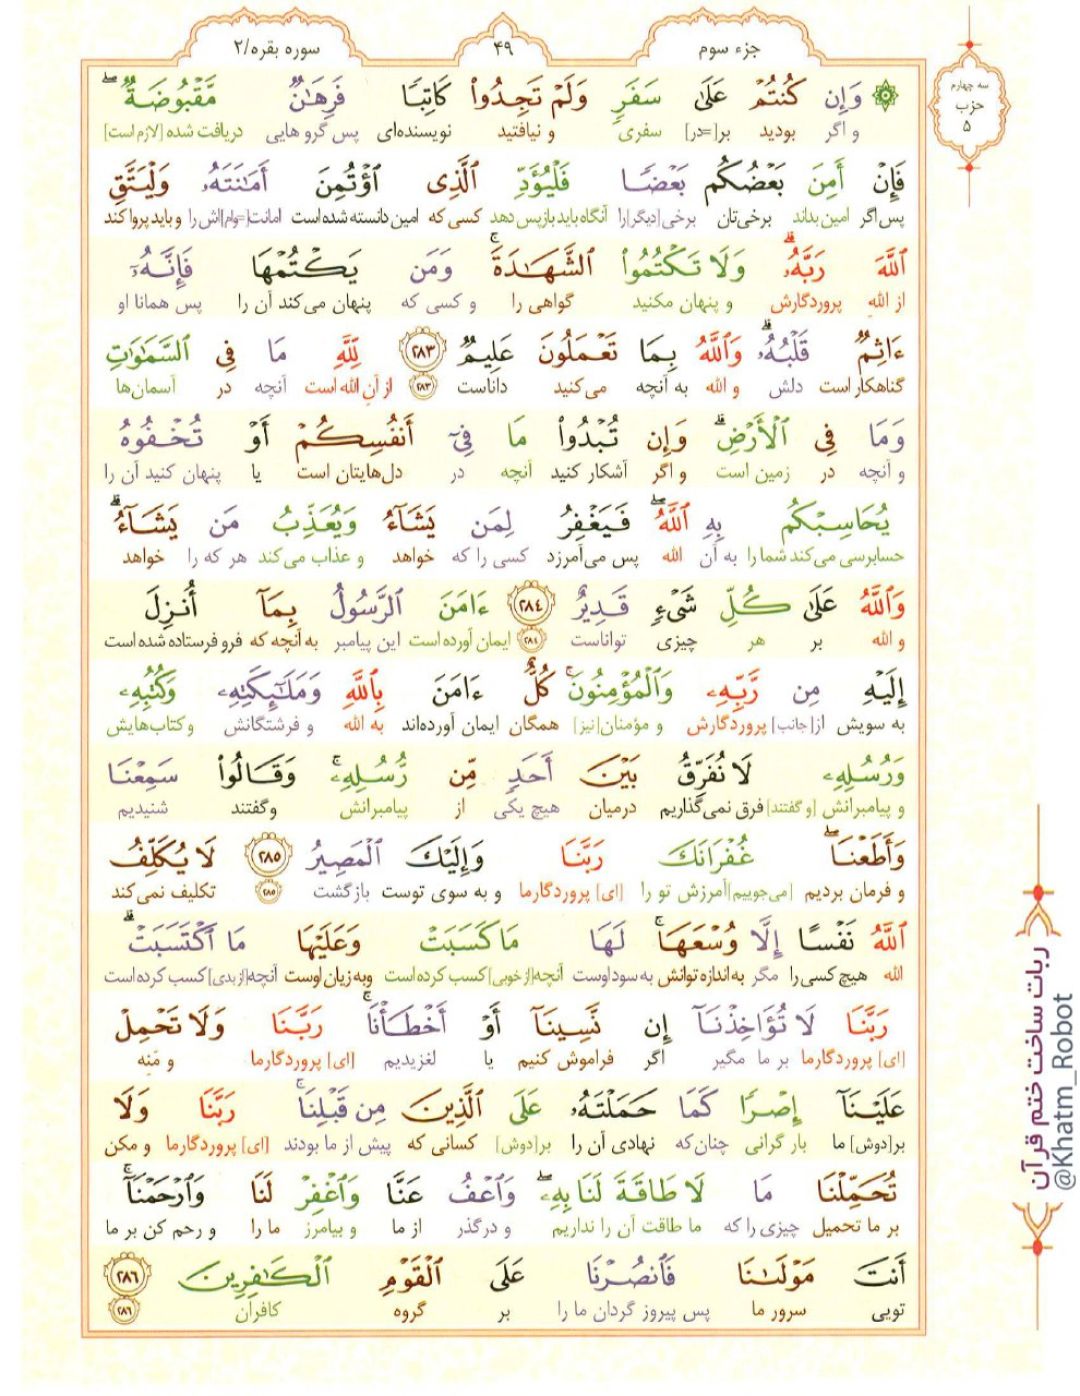 جزء سوم
۴۹
سوره بقره/۲
سه چهارم
حزب
۵
وَإِن كُنتُمْ عَلَىٰ سَفَرٍ وَلَمْ تَجِدُوا۟ كَاتِبًا فَرِهَـٰنٌ مَّقْبُوضَةٌ ۖ
و اگر بودید بر[=در] سفری و نیافتید نویسنده‌ای پس گروهایی دریافت شده [لازم است]
فَإِنْ أَمِنَ بَعْضُكُم بَعْضًا فَلْيُؤَدِّ ٱلَّذِى ٱؤْتُمِنَ أَمَـٰنَتَهُۥ وَلْيَتَّقِ
پس اگر امین بداند برخی‌تان برخی [دیگر] را آنگاه باید بازپس دهد کسی که امین دانسته شده است امانت[=وام]اش را و باید پروا کند
ٱللَّهَ رَبَّهُۥ ۗ وَلَا تَكْتُمُوا۟ ٱلشَّهَـٰدَةَ ۚ وَمَن يَكْتُمْهَا فَإِنَّهُۥٓ
از الله پروردگارش و پنهان مکنید گواهی را و کسی که پنهان می‌کند آن را پس همانا او
ءَاثِمٌ قَلْبُهُۥ ۗ وَٱللَّهُ بِمَا تَعْمَلُونَ عَلِيمٌ ۲۸۳ لِلَّهِ مَا فِى ٱلسَّمَـٰوَٰتِ
گناهکار است دلش و الله به آنچه می‌کنید داناست ۲۸۳ از آن الله است آنچه در آسمان‌ها
وَمَا فِى ٱلْأَرْضِ ۗ وَإِن تُبْدُوا۟ مَا فِىٓ أَنفُسِكُمْ أَوْ تُخْفُوهُ
و آنچه در زمین است و اگر آشکار کنید آنچه در دل‌هایتان است یا پنهان کنید آن را
يُحَاسِبْكُم بِهِ ٱللَّهُ ۖ فَيَغْفِرُ لِمَن يَشَآءُ وَيُعَذِّبُ مَن يَشَآءُ ۗ
حسابرسی می‌کند شما را به آن الله پس می‌آمرزد کسی را که خواهد و عذاب می‌کند هر که را خواهد
وَٱللَّهُ عَلَىٰ كُلِّ شَىْءٍ قَدِيرٌ ۲۸۴ ءَامَنَ ٱلرَّسُولُ بِمَآ أُنزِلَ
و الله بر هر چیزی تواناست ۲۸۴ ایمان آورده است این پیامبر به آنچه که فرو فرستاده شده است
إِلَيْهِ مِن رَّبِّهِۦ وَٱلْمُؤْمِنُونَ ۚ كُلٌّ ءَامَنَ بِٱللَّهِ وَمَلَـٰٓئِكَتِهِۦ وَكُتُبِهِۦ
به سویش از [جانب] پروردگارش و مؤمنان [نیز] همگان ایمان آورده‌اند به الله و فرشتگانش و کتاب‌هایش
وَرُسُلِهِۦ لَا نُفَرِّقُ بَيْنَ أَحَدٍ مِّن رُّسُلِهِۦ ۚ وَقَالُوا۟ سَمِعْنَا
و پیامبرانش [و گفتند] فرق نمی‌گذاریم درمیان هیچ یکی از پیامبرانش و گفتند شنیدیم
وَأَطَعْنَا ۖ غُفْرَانَكَ رَبَّنَا وَإِلَيْكَ ٱلْمَصِيرُ ۲۸۵ لَا يُكَلِّفُ
و فرمان بردیم [می‌جوییم] آمرزش تو را [ای] پروردگارما و به سوی توست بازگشت ۲۸۵ تکلیف نمی‌کند
ٱللَّهُ نَفْسًا إِلَّا وُسْعَهَا ۚ لَهَا مَا كَسَبَتْ وَعَلَيْهَا مَا ٱكْتَسَبَتْ ۗ
الله هیچ کسی را مگر به اندازه توانش به سود اوست آنچه [از خوبی] کسب کرده است و به زیان اوست آنچه [از بدی] کسب کرده است
رَبَّنَا لَا تُؤَاخِذْنَآ إِن نَّسِينَآ أَوْ أَخْطَأْنَا ۚ رَبَّنَا وَلَا تَحْمِلْ
[ای] پروردگارما بر ما مگیر اگر فراموش کنیم یا لغزیدیم [ای] پروردگارما و منه
عَلَيْنَآ إِصْرًا كَمَا حَمَلْتَهُۥ عَلَى ٱلَّذِينَ مِن قَبْلِنَا ۚ رَبَّنَا وَلَا
بر [دوش] ما بار گرانی چنان که نهادی آن را بر [دوش] کسانی که پیش از ما بودند [ای] پروردگارما و مکن
تُحَمِّلْنَا مَا لَا طَاقَةَ لَنَا بِهِۦ ۖ وَٱعْفُ عَنَّا وَٱغْفِرْ لَنَا وَٱرْحَمْنَآ ۚ
بر ما تحمیل چیزی را که ما طاقت آن را نداریم و درگذر از ما و بیامرز ما را و رحم کن بر ما
أَنتَ مَوْلَىٰنَا فَٱنصُرْنَا عَلَى ٱلْقَوْمِ ٱلْكَـٰفِرِينَ ۲۸۶
تویی سرور ما پس پیروز گردان ما را بر گروه کافران ۲۸۶
ربات ساخت ختم قرآن
@Khatm_Robot